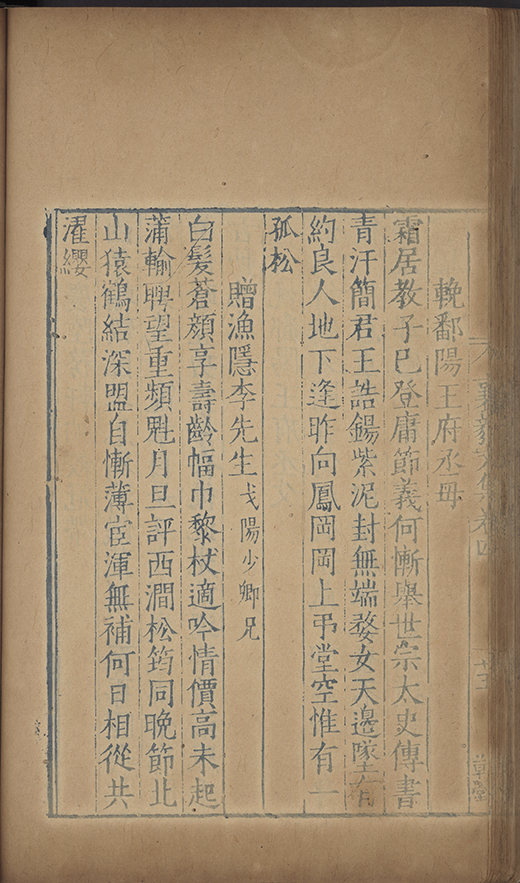 輓鄱陽王府丞母
霜居教子已登庸節義何慚舉世宗太史傳書
青汗簡君王誥錫紫泥封無端婺女天邊墜有
約良人地下逢昨向鳳岡岡上弔堂空惟有一
孤松
贈漁隱李先生弋陽少卿兄
白髪蒼顔享壽齡幅巾藜杖適吟情價高未起
蒲輪聘望重頻覣月旦評西澗松筠同晚節北
山猿鶴結深盟自慚薄宦渾無補何日相從共
濯纓